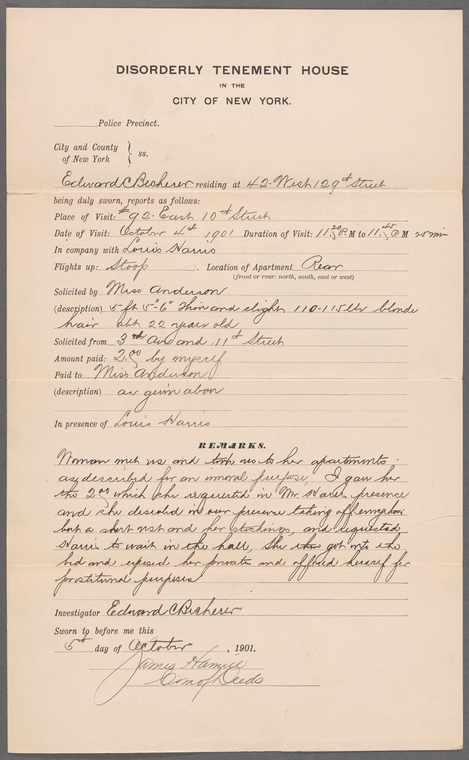 DISORDERLY TENEMENT HOUSE
IN THE
CITY OF NEW YORK.
Police Precinct.
City and County
of New York } ss.
Edward C Becherer residing at 42 - West 129th Street
being duly sworn, reports as follows:
Place of Visit: #92 - East 10th Street
Date of Visit: October 4th 1901 Duration of Visit: 11 P.M to 11 P.M min
In company with Louis Harris
Flights up: Stoop . Location of Apartment Rear
(front or rear: north, south, east or west)
Solicited by Miss Anderson
(description) 5 ft 5"-6" thin and slight 110-115 lbs blonde
hair abt 22 years old
Solicited from 3rd Ave and 11th Street
Amount paid: 2.00 by myself
Paid to Miss Anderson
(description) as given above
In presence of Louis Harris
REMARKS.
Woman met us and took us to her apartments -
as described for an immoral purpose, I gave her
the 2.00 which she requested in Mr Harris presence
and she disrobed in our presence taking off
but a short vest and her stockings, and requested
Harris to wait in the hall, She then got onto the
bed and her private and offered herself for
purposes
Investigator Edward C Becherer
Sworn to before me this
5th day of October , 1901.
James
Com of Deeds